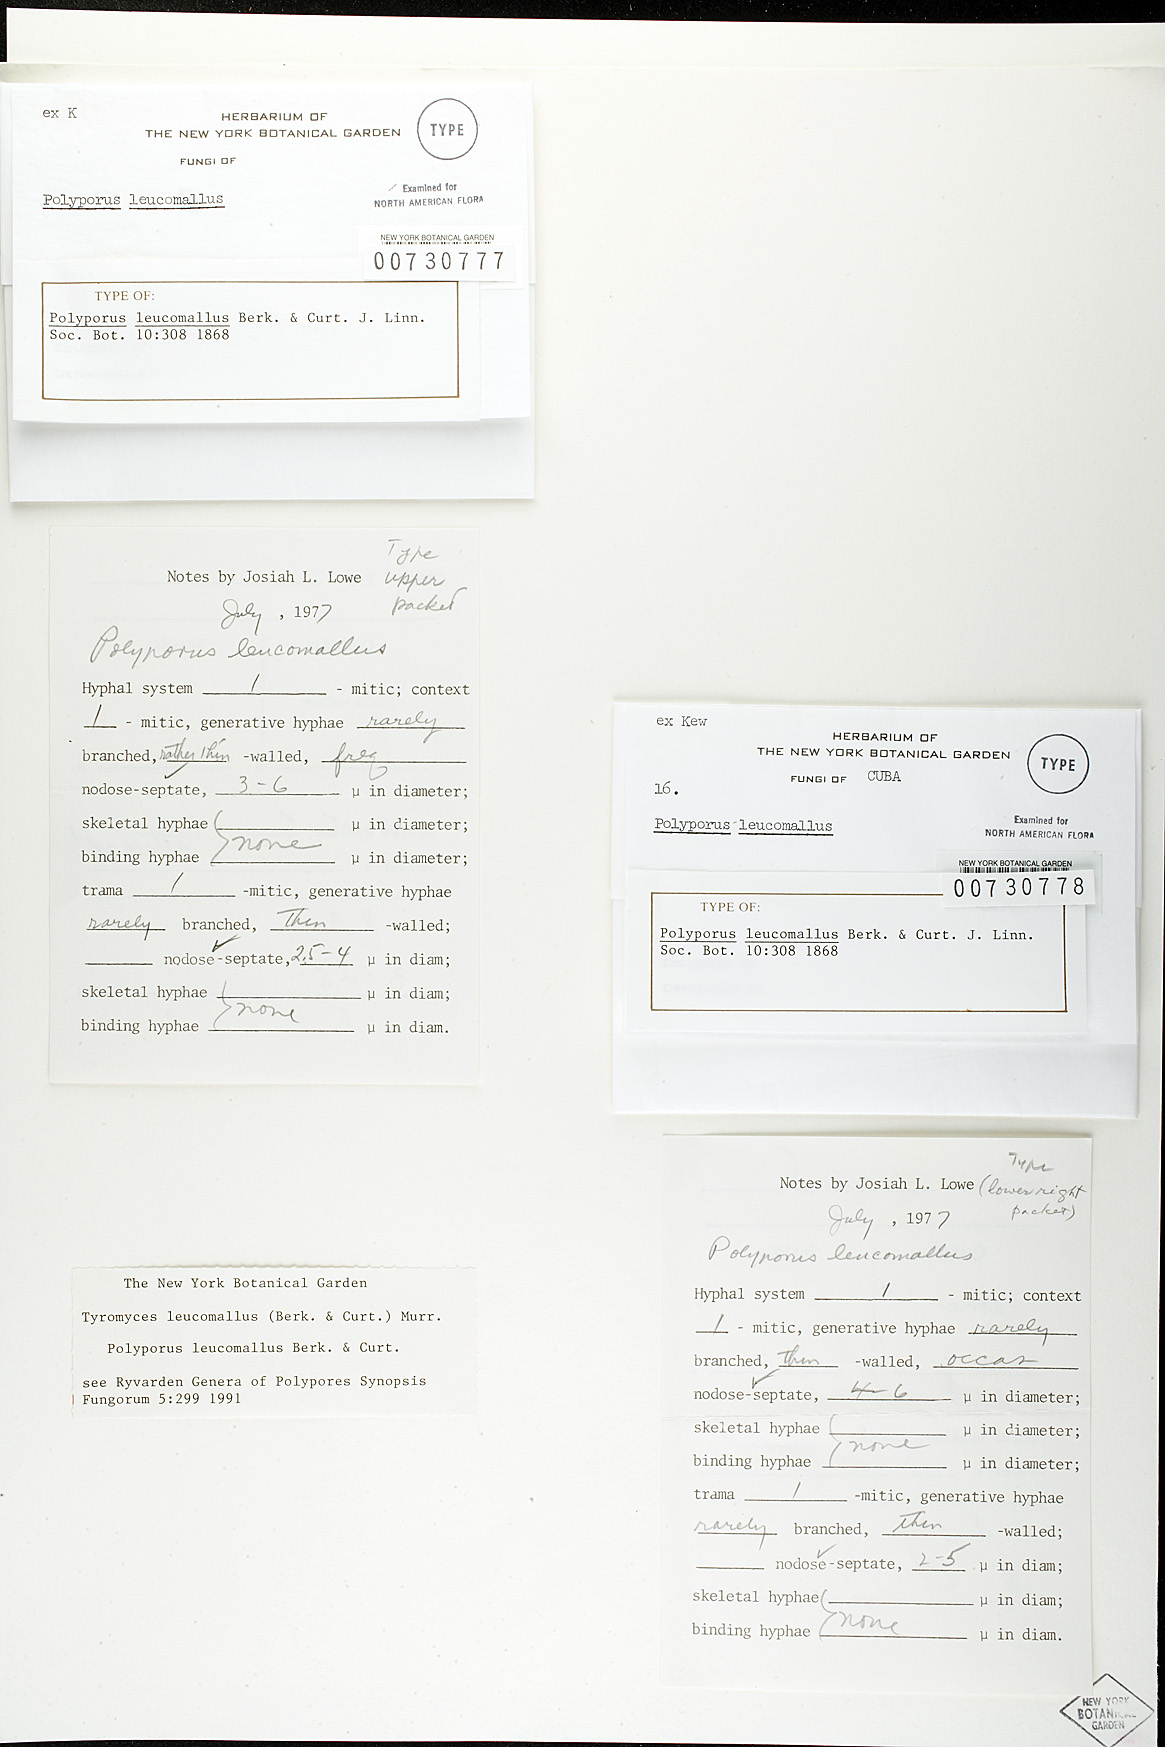 ex K
HERBARIUM OF
THE NEW YORK BOTANICAL GARDEN
TYPE
FUNGI OF
Examined for
NORTH AMERICAN FLORA
Polyporus leucomallus
NEW YORK BOTANICAL GARDEN
00730777
TYPE OF:
Polyporus leucomallus Berk. & Curt. J. Linn.
Soc. Bot. 10:308 1868
Type
upper
packet
Notes by Josiah L. Lowe
July, 1977
Polyporus leucomallus
Hyphal system 1 - mitic; context
1 - mitic, generative hyphae rarely
branched, rather thin -walled, freq
nodose-septate, 3-6 µ in diameter;
skeletal hyphae µ in diameter;
none
binding hyphae µ in diameter;
trama 1 -mitic, generative hyphae
rarely branched, thin -walled;
nodose-septate, 2.5-4 µ in diam;
skeletal hyphae µ in diam;
none
binding hyphae µ in diam.
The New York Botanical Garden
Tyromyces leucomallus (Berk. & Curt.) Murr.
Polyporus leucomallus Berk. & Curt.
see Ryvarden Genera of Polypores Synopsis
Fungorum 5:299 1991
ex Kew
HERBARIUM OF
THE NEW YORK BOTANICAL GARDEN
TYPE
FUNGI OF CUBA
16.
Examined for
NORTH AMERICAN FLORA
Polyporus leucomallus
NEW YORK BOTANICAL GARDEN
00730778
TYPE OF:
Polyporus leucomallus Berk. & Curt. J. Linn.
Soc. Bot. 10:308 1868
Type
(lower right
packet)
Notes by Josiah L. Lowe
July, 1977
Polyporus leucomallus
Hyphal system 1 - mitic; context
1 - mitic, generative hyphae rarely
branched, thin -walled, occas
nodose-septate, 4-6 µ in diameter;
skeletal hyphae µ in diameter;
none
binding hyphae µ in diameter;
trama 1 -mitic, generative hyphae
rarely branched, thin -walled;
nodose-septate, 2-5 µ in diam;
skeletal hyphae µ in diam;
none
binding hyphae µ in diam.
NEW YORK
BOTANICAL
GARDEN